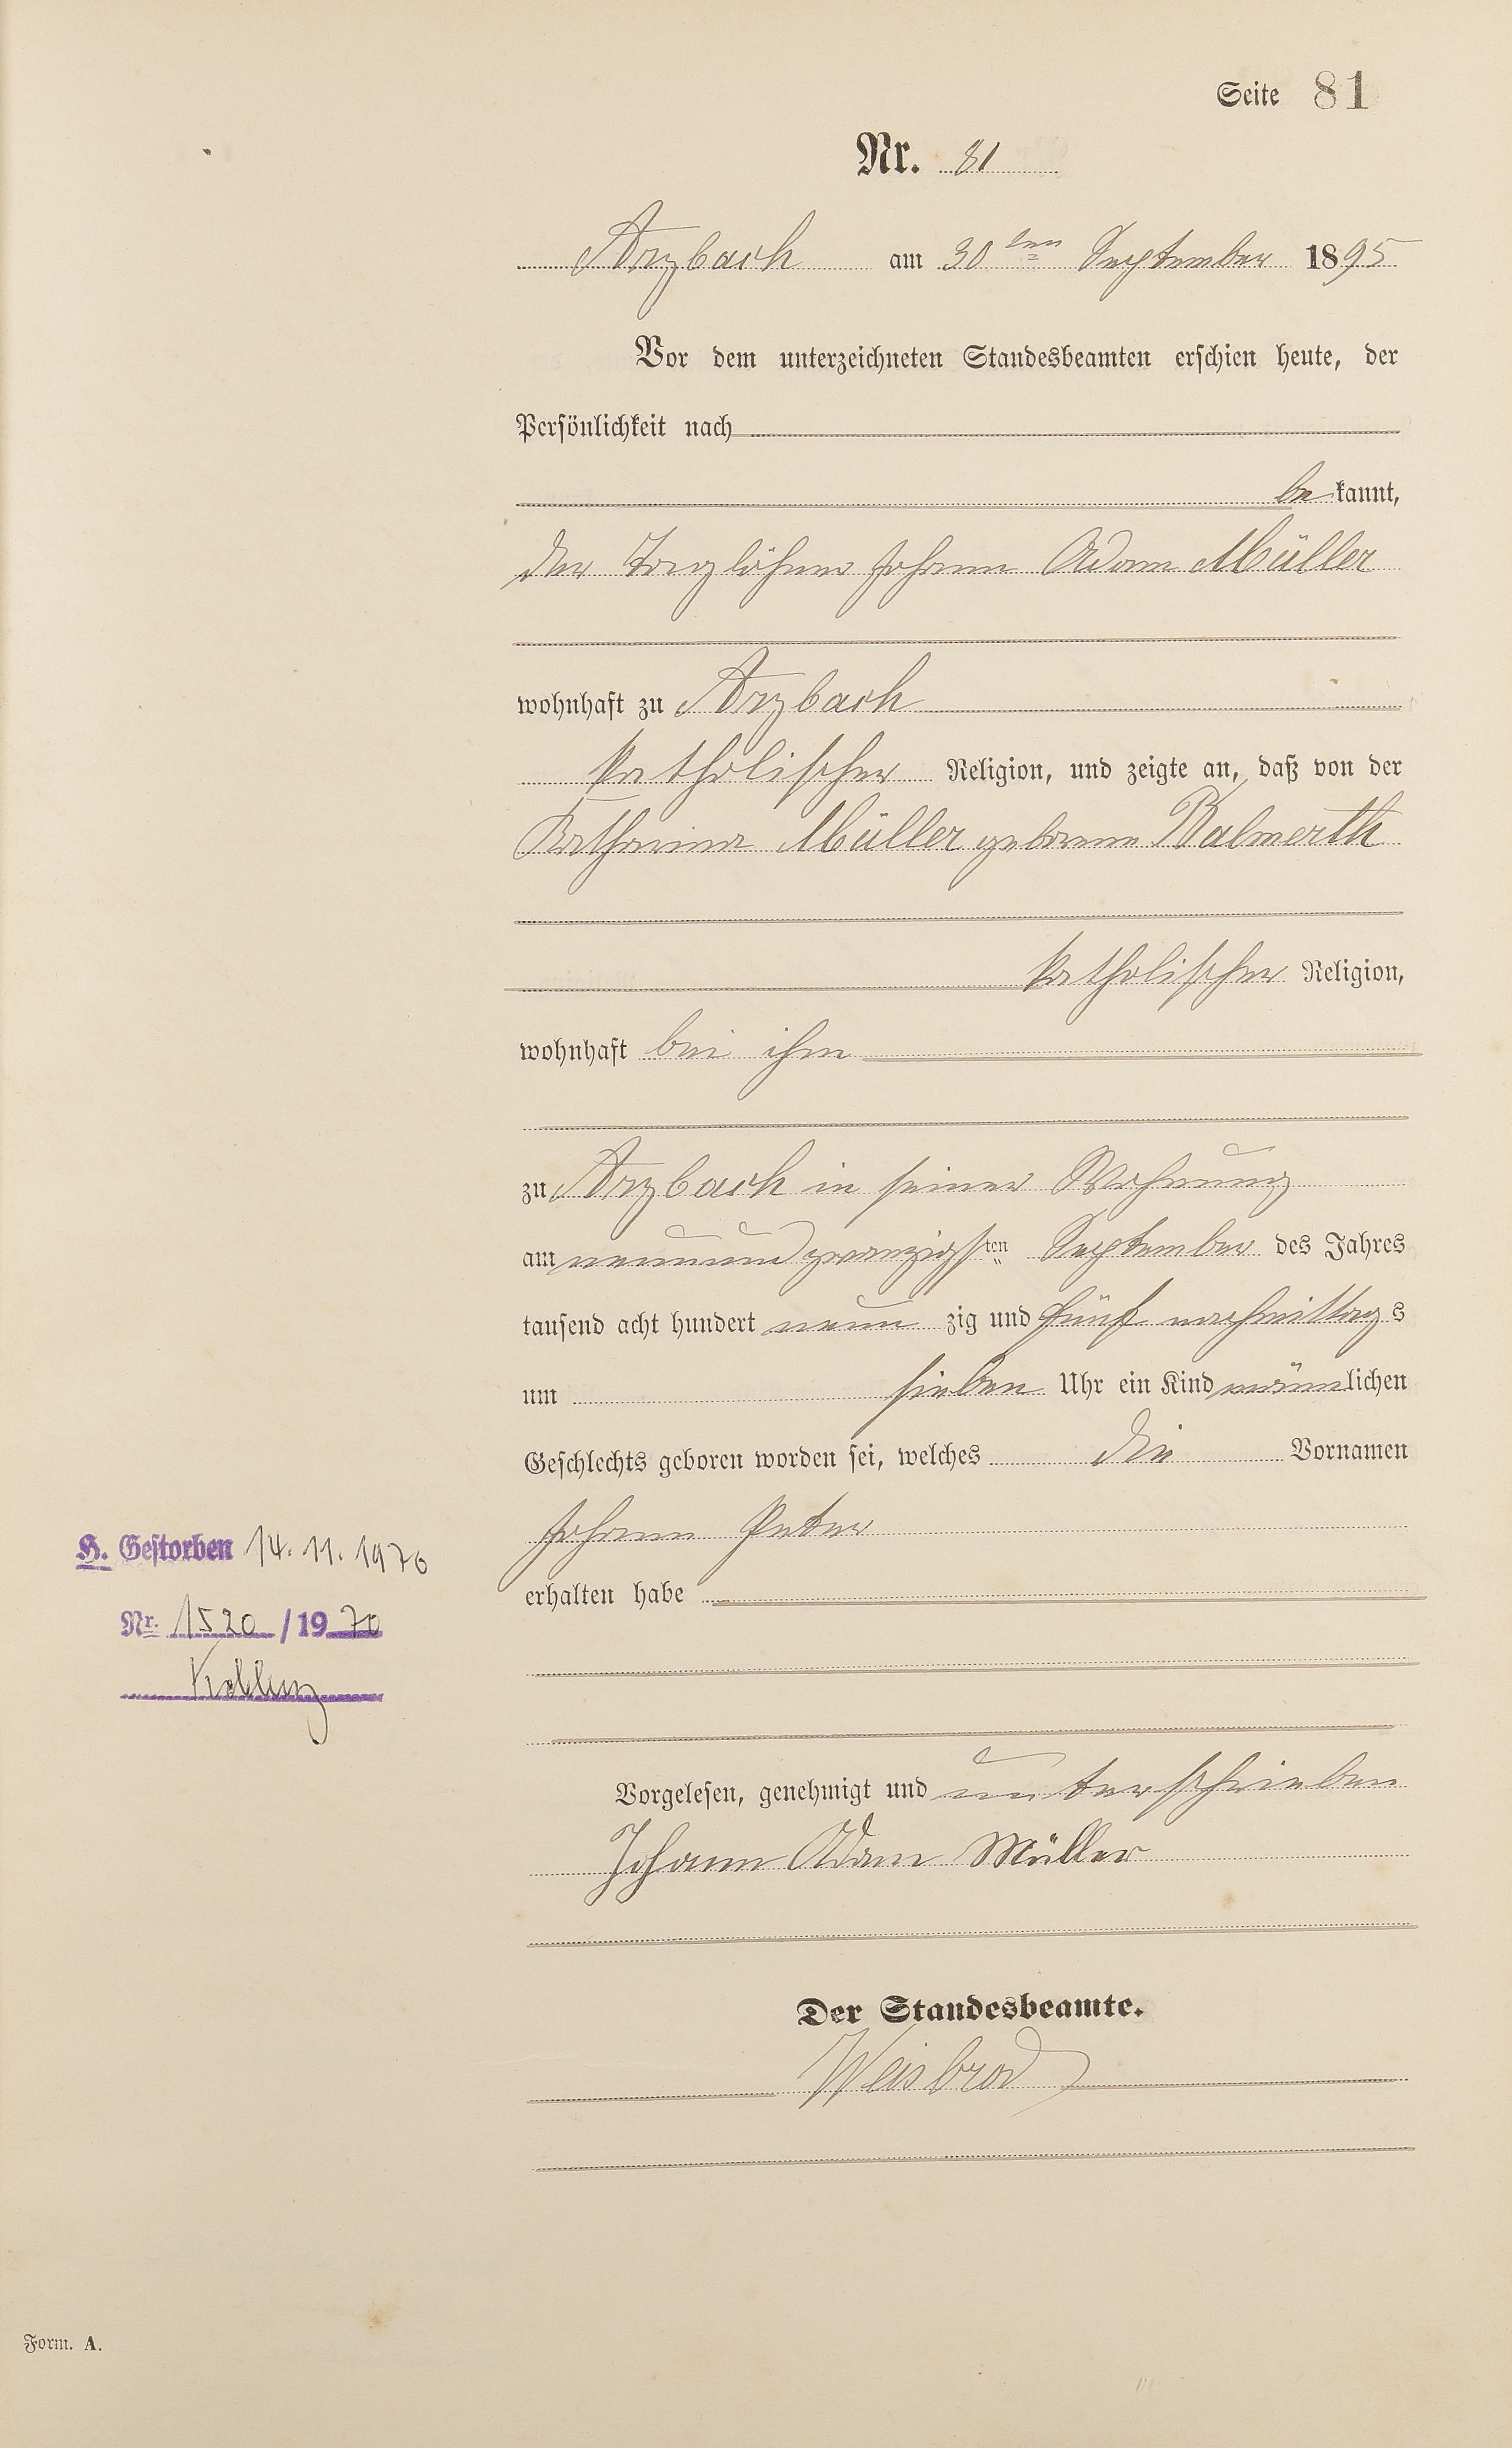 Seite 81
Nr. 81
Arzbach am 30ten September 1895
Vor dem unterzeichneten Standesbeamten erschien heute, der
Persönlichkeit nach
be kannt,
der Taglöhner Johann Adam Müller
wohnhaft zu Arzbach
katholischer Religion, und zeigte an, daß von der
Katharina Müller geborene Balmerth
katholischer Religion,
wohnhaft bei ihm
zu Arzbach in seiner Wohnung
am neunundzwanzigsten September des Jahres
tausend acht hundert neun zig und fünf nachmittags
um sieben Uhr ein Kind männlichen
Geschlechts geboren worden sei, welches die Vornamen
Johann Peter
H. Gestorben 14.11.1970
erhalten habe
Nr. 1520 / 1970
Koblenz
Vorgelesen, genehmigt und unterschrieben
Johann Adam Müller
Der Standesbeamte.
Weisbrod
Form. A.